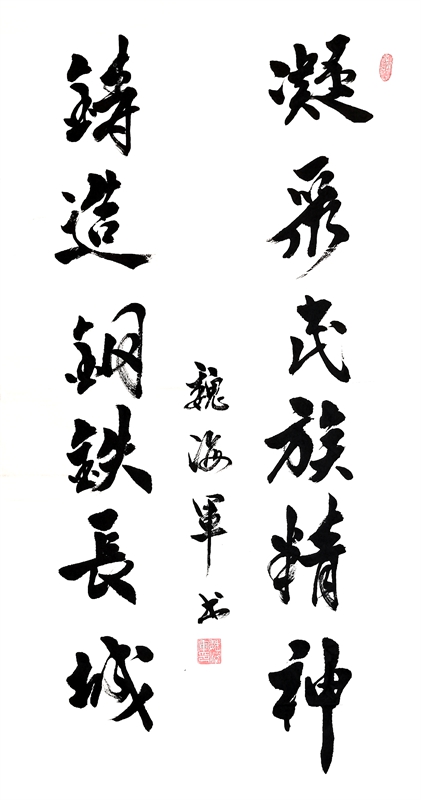 凝聚民族精神
鑄造鋼鉄長城
魏海軍书